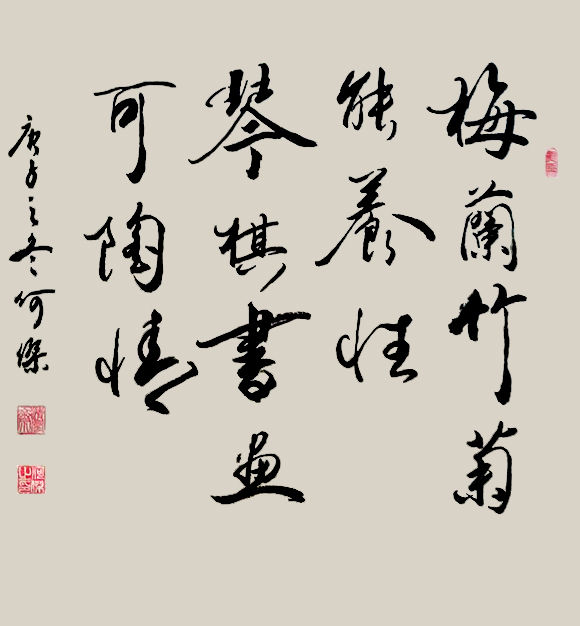 梅蘭竹菊
能養性
琴棋書畫
可陶情
庚子之冬何傑